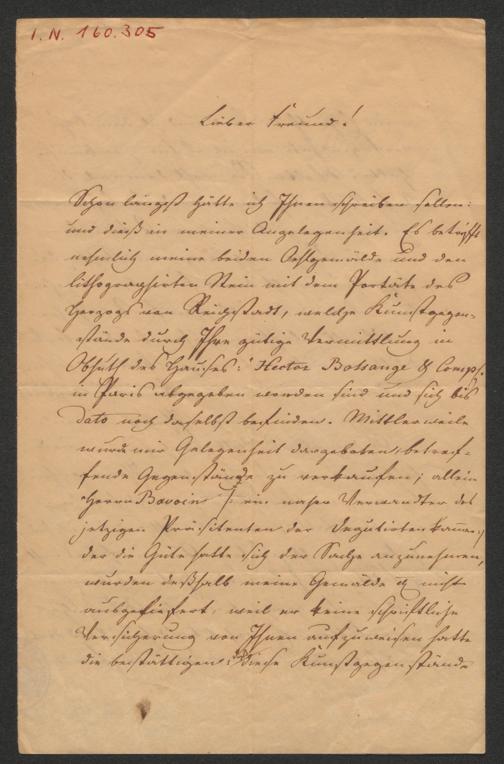 I. N. 160.305
Lieber Freund!
Schon längst hätte ich Ihnen schreiben sollen:
und dieß in meiner Angelegenheit. Es betrifft
nehmlich meine beiden Oehlgemälde und den
lithographirten Stein mit dem Porträte des
Herzogs von Reichstadt, welche Kunstgegen-
stände durch Ihre gütige Vermittlung in
Obhuth des Hauses: Hector Bossange & Comp.
in Paris abgegeben worden sind und sich bis
dato noch daselbst befinden. Mittlerweile
wurde mir Gelegenheit dargeboten, betref-
fende Gegenstände zu verkaufen; allein
Herrn Bavoin /: ein naher Verwandter des
jetzigen Präsidenten der Deputirten
der die Güte hatte sich der Sache anzunehmen,
wurden deßhalb meine Gemälde & nicht
ausgeliefert, weil er keine schriftliche
Versicherung von Ihnen aufzuweisen hatte
die bestättigen: diese Kunstgegenstände